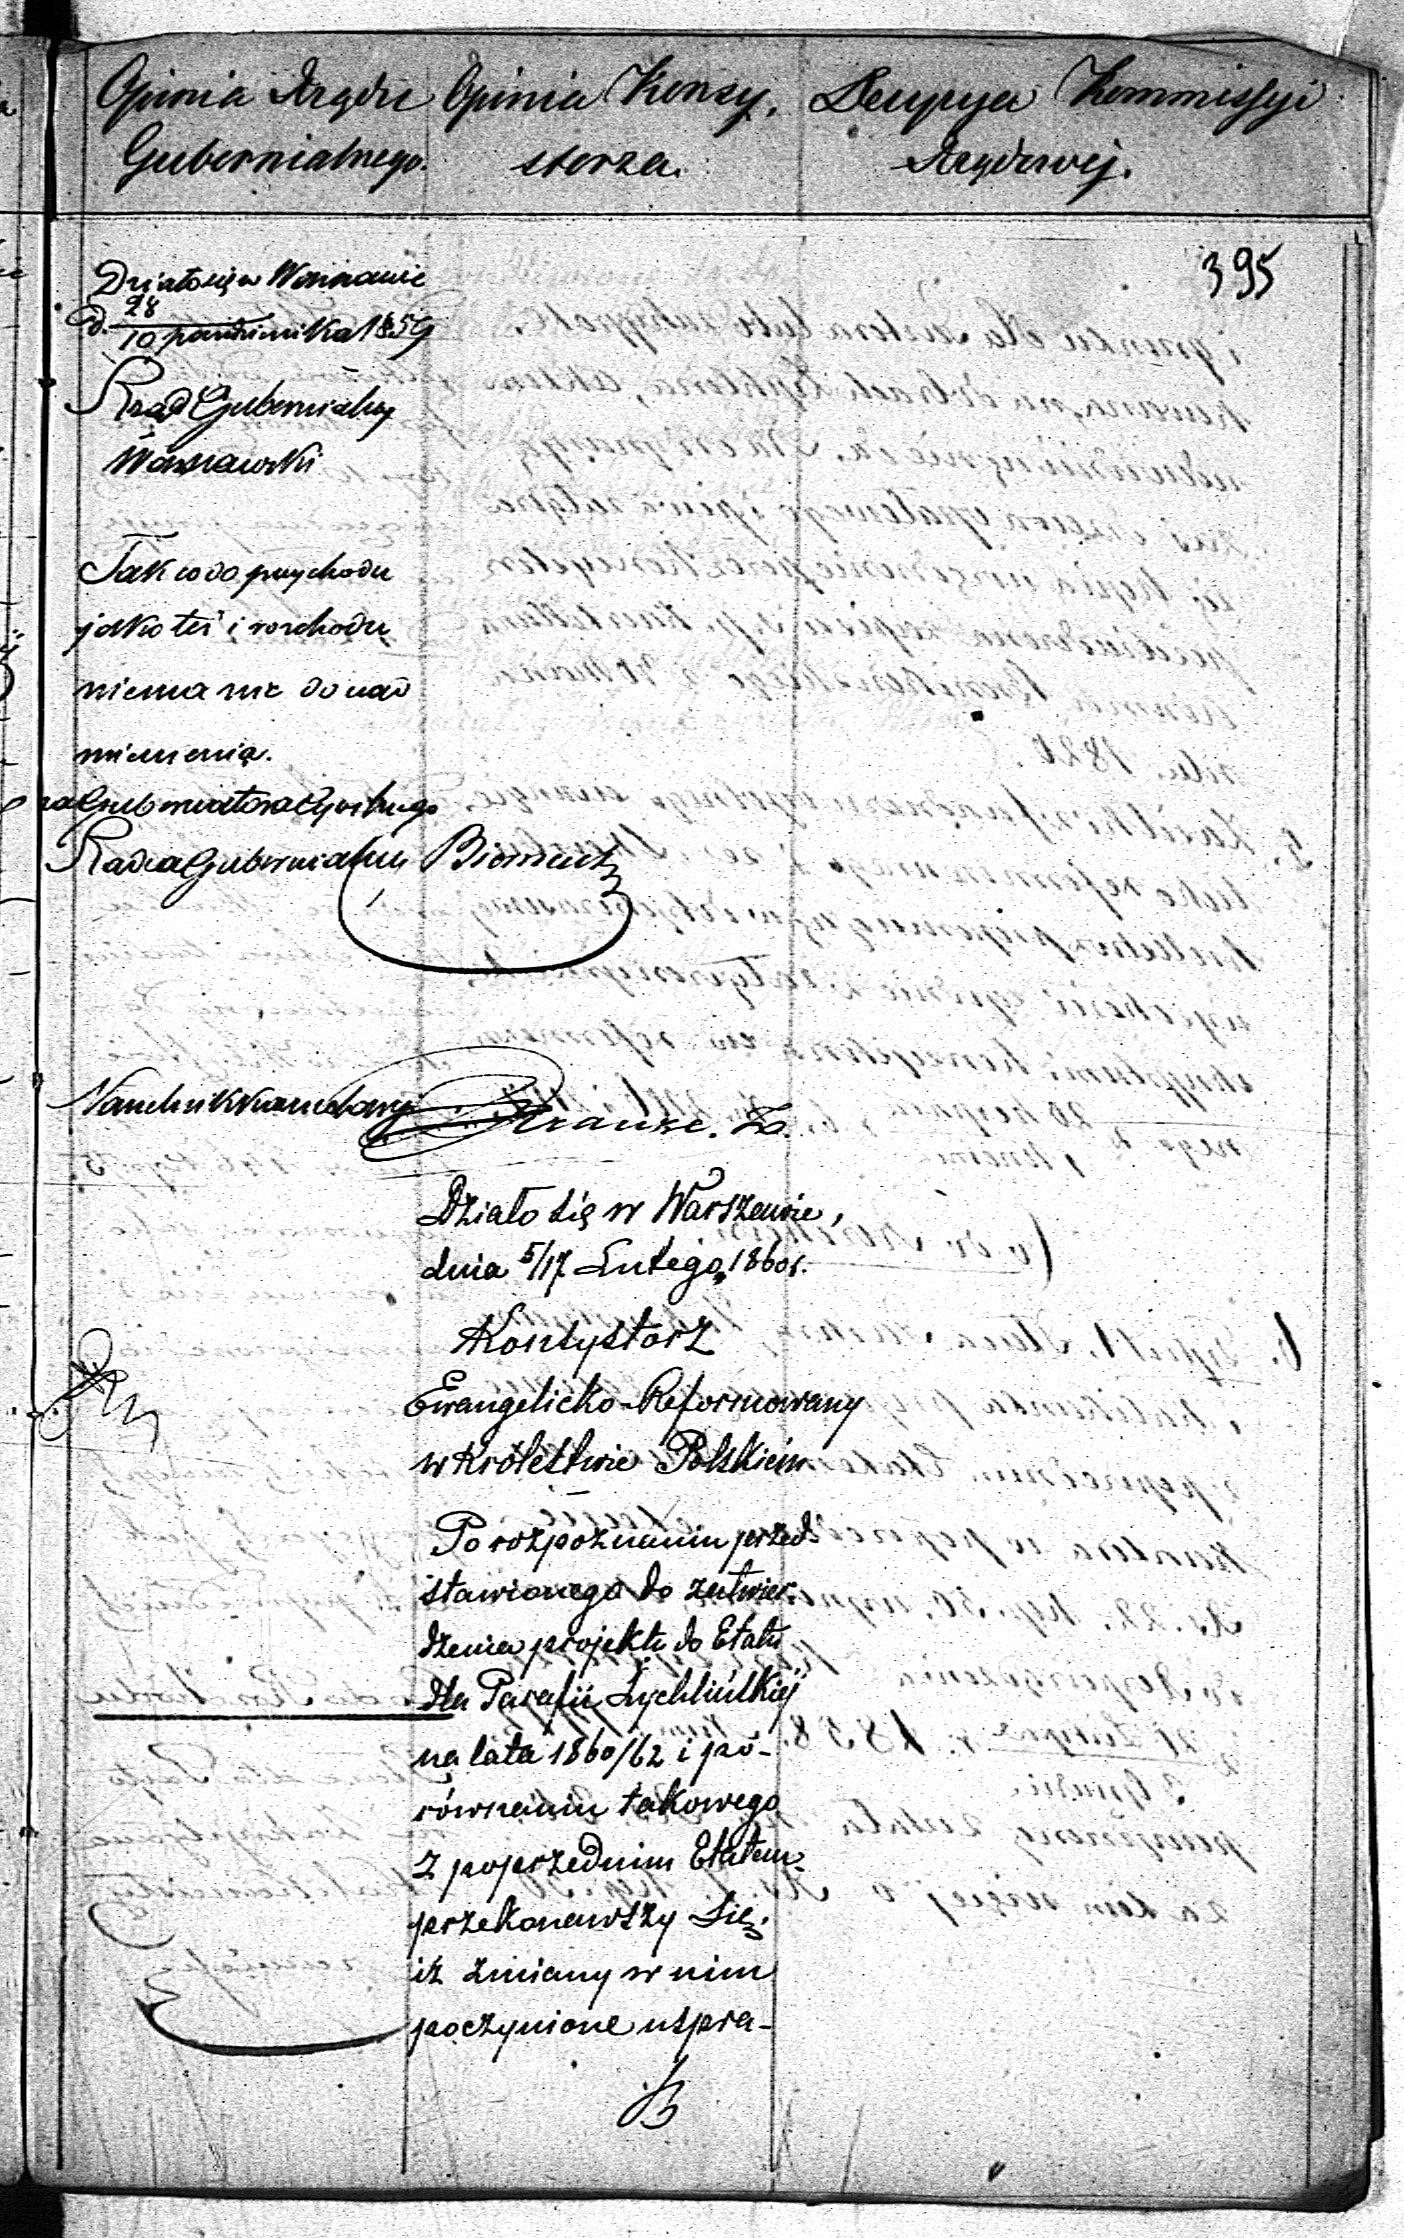 Opinia Rządu
Gubernialnego.
Opinia Konsy-
storza.
Decyzya Kommissyi
Rządowej.
395
Działo się w Warszawie
d. 28/10 października 1859
Rząd Gubernialny
Warszawski
Tak co do przychodu
jako też i rozchodu
niema nic do nad
mienienia.
za Gubernatora Cywilnego
Radca Gubernialny
Naczelnik Kancelaryi Krause.
Działo się w Warszawie,
dnia 5/17 Lutego 1860 r.
Konsystorz
Ewangelicko-Reformowany
w Królestwie Polskiém
Po rozpoznaniu przed-
stawionego do zatwier-
dzenia projektu do Etatu
dla Parafii Żychlińskiéj
na lata 1860/62 i po-
równaniu takowego
z poprzednim Etatem
przekonawszy się,
iż zmiany w nim
poczynione uspra-